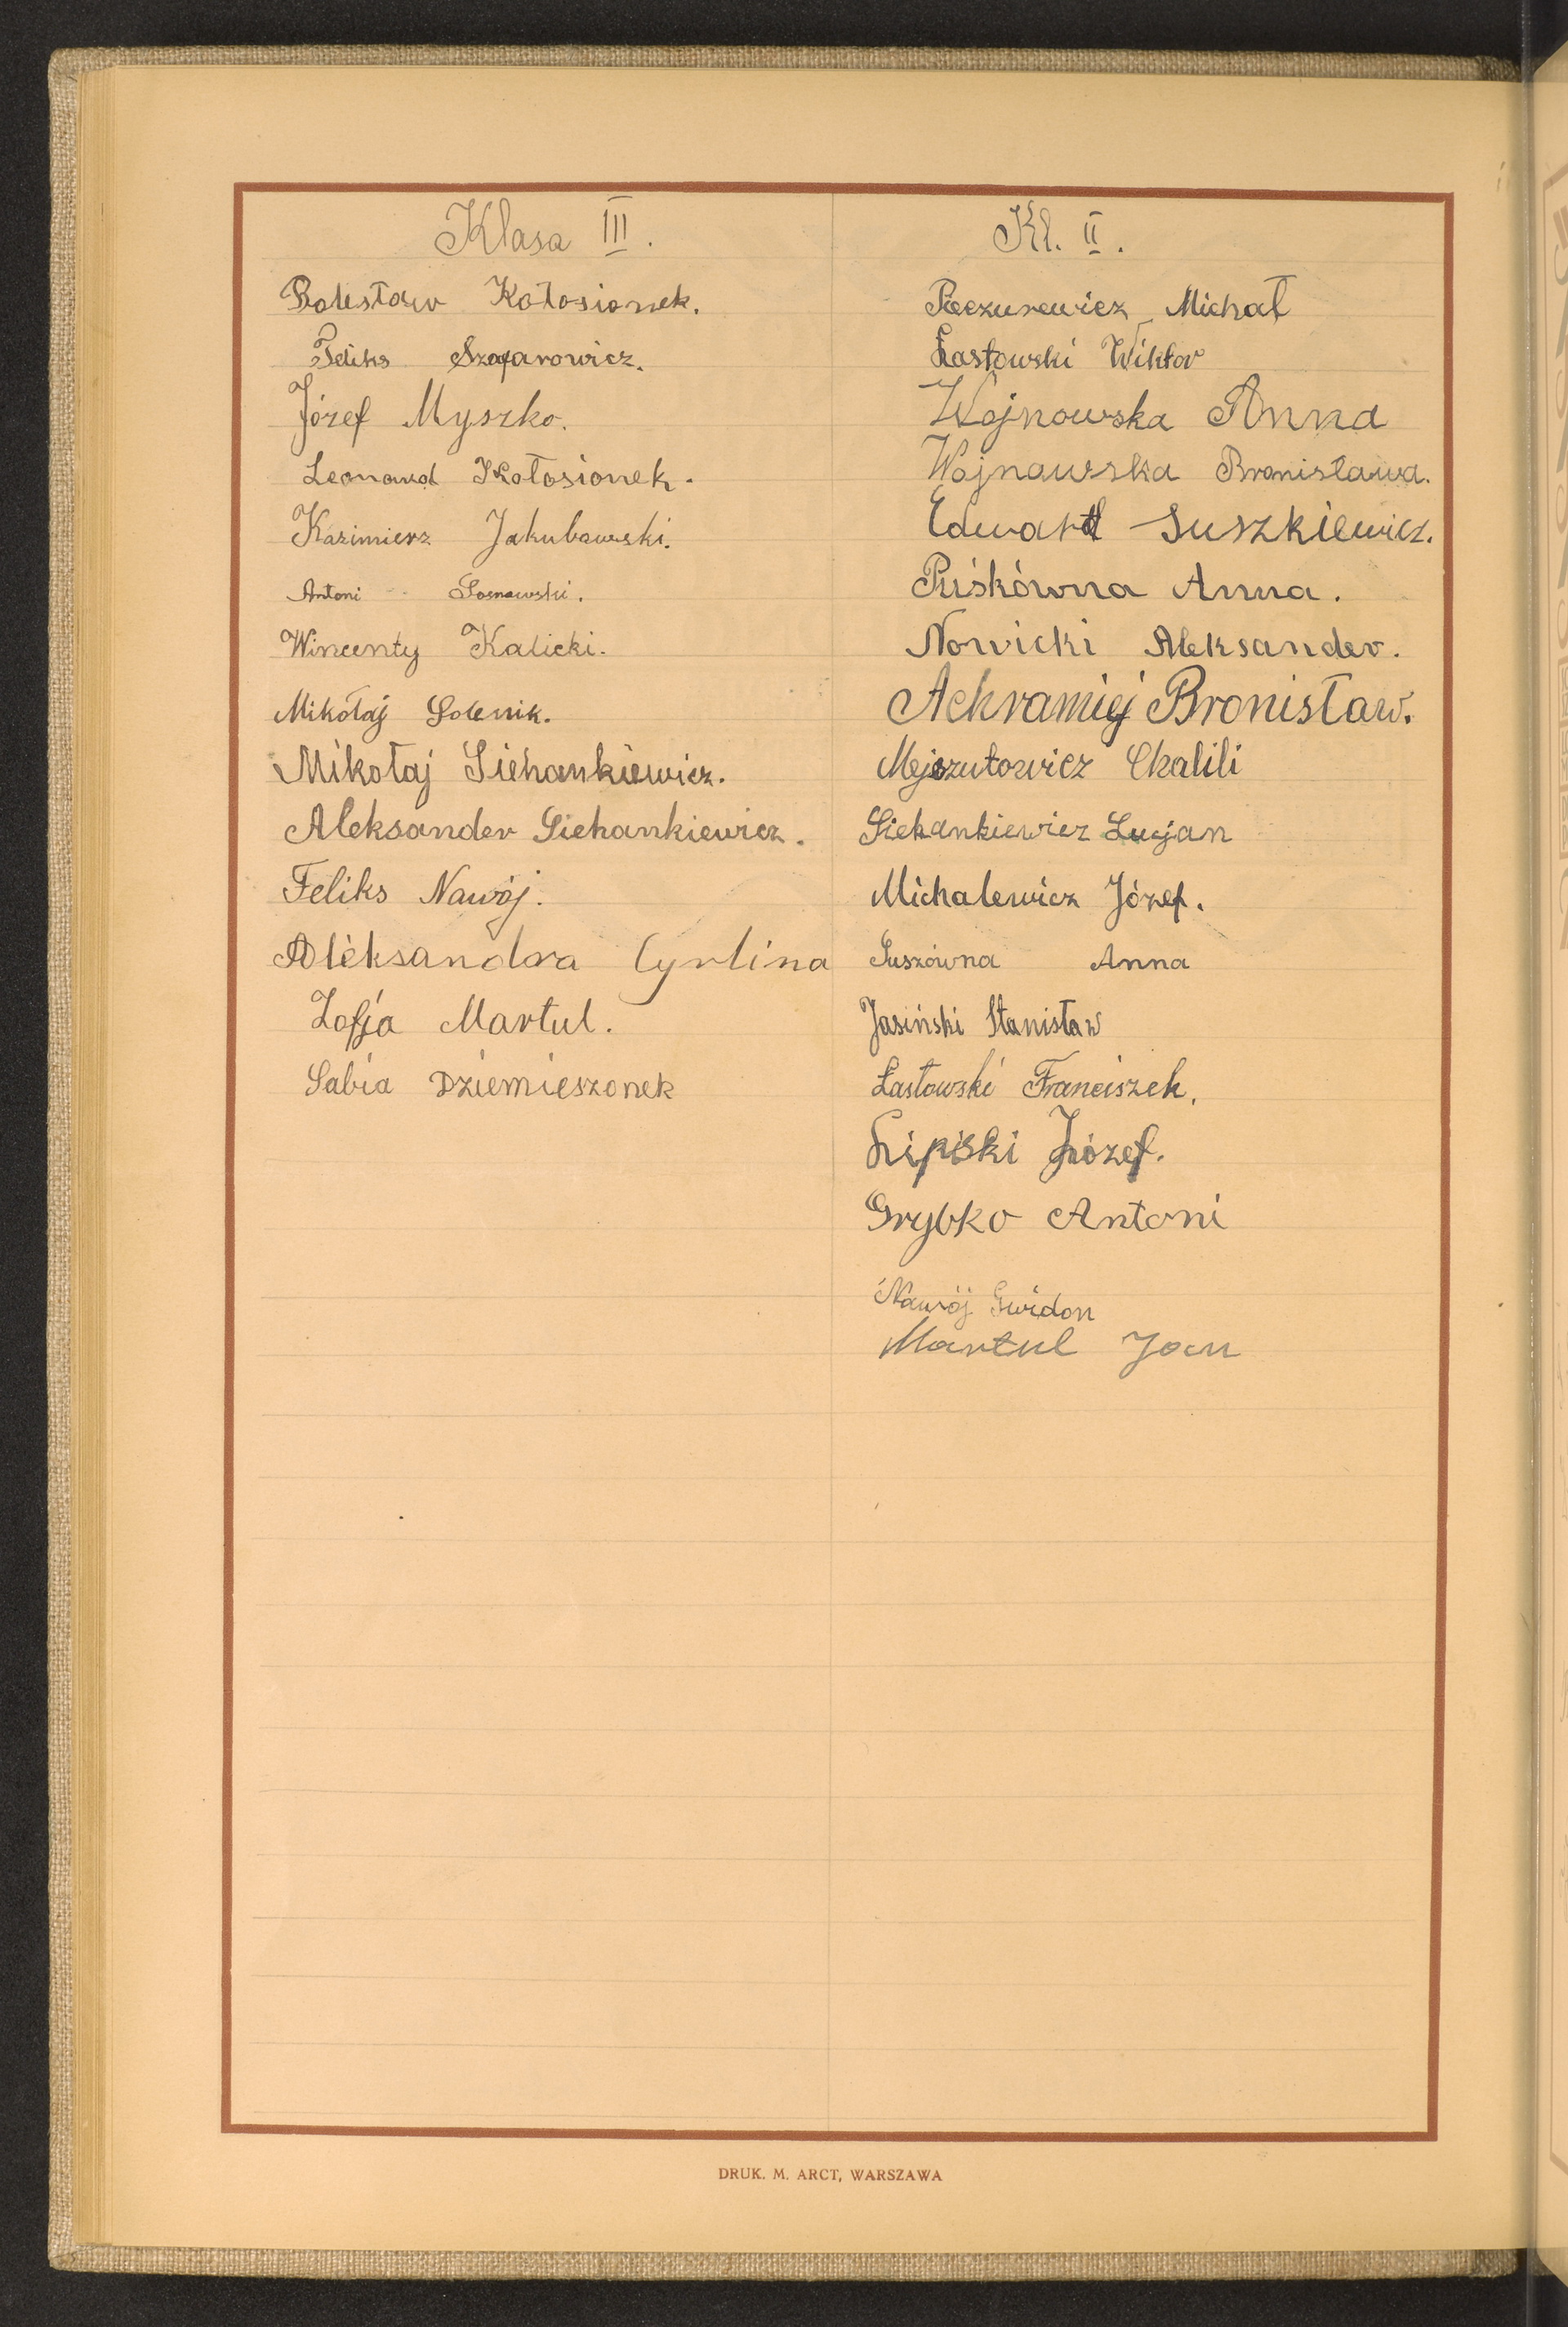 Klasa III.
Bolesław Kołosionek.
Feliks Szafarowicz.
Józef Myszko.
Leonard Kołosionek.
Kazimierz Jakubowski.
Antoni Sosnowski.
Wincenty Kalicki.
Mikołaj Solenik.
Mikołaj Siehankiewicz.
Aleksander Siehankiewicz.
Feliks Nawój.
Aleksandra Cyrlina
Zofja Martul.
Sabia Dziemieszonek
Kl. II.
Michał
Łastowski Wiktor
Wojnowska Anna
Wojnowska Bronisława.
Edward Suszkiewicz.
Puśkówna Anna.
Nowicki Aleksander.
Achramiej Bronisław.
Mejszutowicz Chalili
Siehankiewicz Lucjan
Michalewicz Józef.
Suszówna Anna
Jasiński Stanisław
Łastowski Franciszek.
Lipiski Józef.
Grybko Antoni
Nawój Gwidon
Martul Jan
DRUK. M. ARCT, WARSZAWA